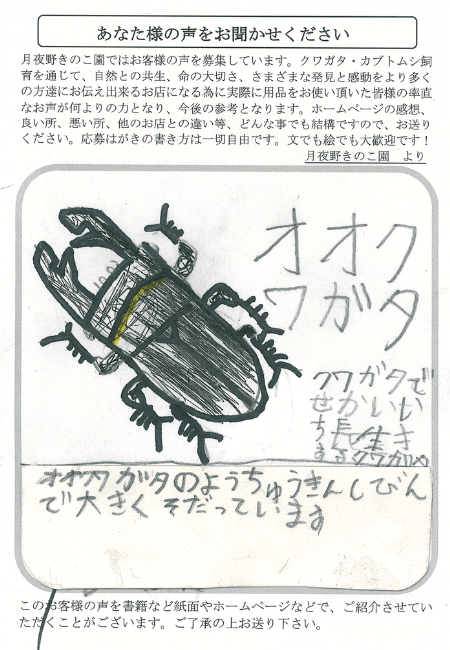 あなた様の声をお聞かせください
月夜野きのこ園ではお客様の声を募集しています。クワガタ・カブトムシ飼
育を通じて、自然との共生、命の大切さ、さまざまな発見と感動をより多く
の方達にお伝え出来るお店になる為に実際に用品をお使い頂いた皆様の率直
なお声が何よりの力となり、今後の参考となります。ホームページの感想、
良い所、悪い所、他のお店との違い等、どんな事でも結構ですので、お送り
ください。応募はがきの書き方は一切自由です。文でも絵でも大歓迎です！
月夜野きのこ園　より
オオク
ワガタ
クワガタで
せかいい
ち長生き
するクワガタ
オオクワガタのようちゅうきんしびん
で大きくそだっています
このお客様の声を書籍など紙面やホームページなどで、ご紹介させてい
ただくことがございます。ご了承の上お送り下さい。